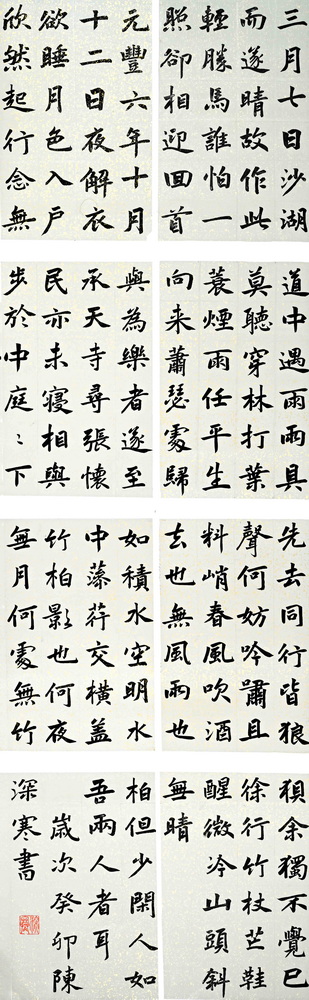 三月七日沙湖
道中遇雨雨具
先去同行皆狼
狽余獨不覺已
而遂晴故作此
莫聽穿林打葉
聲何妨吟嘯且
徐行竹杖芒鞋
輕勝馬誰怕一
蓑煙雨任平生
料峭春風吹酒
醒微冷山頭斜
照卻相迎回首
向来蕭瑟處歸
去也無風雨也
無晴
元豐六年十月
十二日夜解衣
欲睡月色入户
欣然起行念無
與為樂者遂至
承天寺尋張懷
民亦未寢相與
步於中庭〻下
如積水空明水
中藻荇交橫蓋
竹柏影也何夜
無月何處無竹
柏但少閑人如
吾兩人者耳
歲次癸卯陳
深寒書